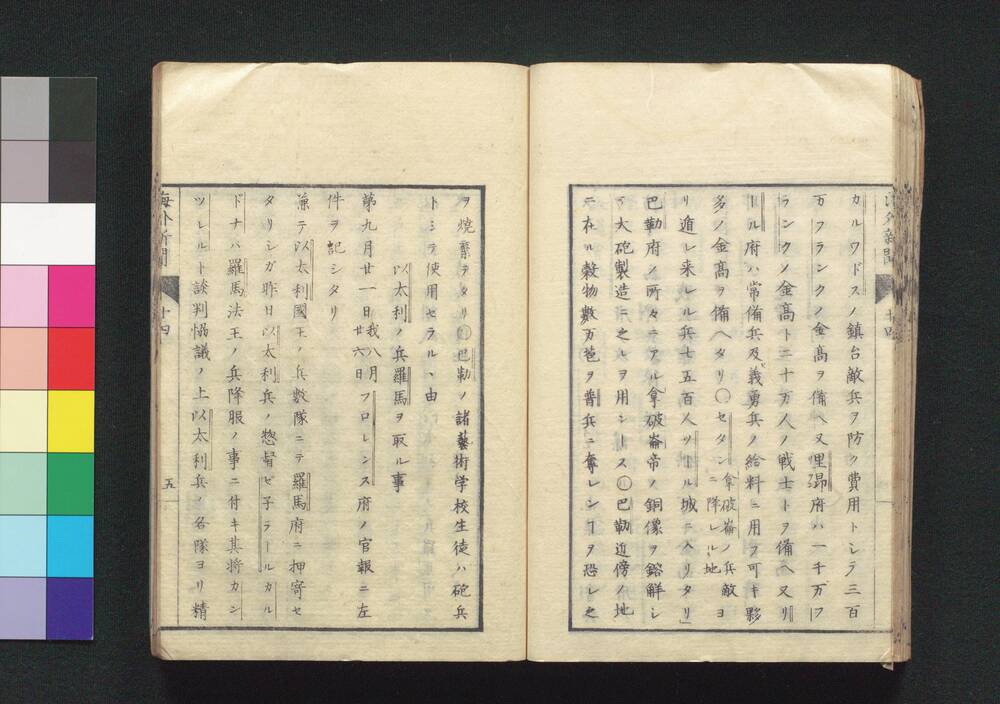 カルワドスノ鎮台敵兵ヲ防ク費用トシテ三百
万フランクノ金高ヲ備ヘ又里昂府ハ一千万フ
ランクノ金高ト二十万人ノ戦士トヲ備ヘ又リ
ール府ハ常備兵及ヒ義勇兵ノ給料ニ用フ可キ夥
多ノ金高ヲ備ヘタリ○セタン拿破崙ノ兵敵ニ降レル地ヨ
リ遁レ来レル兵七五百人リール城ニ入リタリ」
巴勒府ノ所々ニアル拿破崙帝ノ銅像ヲ鎔解シ
テ大砲製造ニ之ルヲ用ントス○巴勒近傍ノ地
ニ在ル穀物数万苞ヲ普兵ニ奪レンヿヲ恐レ之
海外新聞
十四
ヲ焼棄ヲタリ○巴勒ノ諸藝術学校生徒ハ砲兵
トシテ使用セラルヽ由
以太利ノ兵羅馬ヲ取ル事
第九月廿一日我八月廿六日フロレンス府ノ官報ニ左
件ヲ記シタリ
兼テ以太利國王ノ兵数隊ニテ羅馬府ニ押寄セ
タリシガ昨日以太利兵ノ惣督ゼ子ラールカル
ドナハ羅馬法王ノ兵降服ノ事ニ付キ其将カン
ツレルト談判協議ノ上以太利兵ノ各隊ヨリ精
海外新聞
十四
五